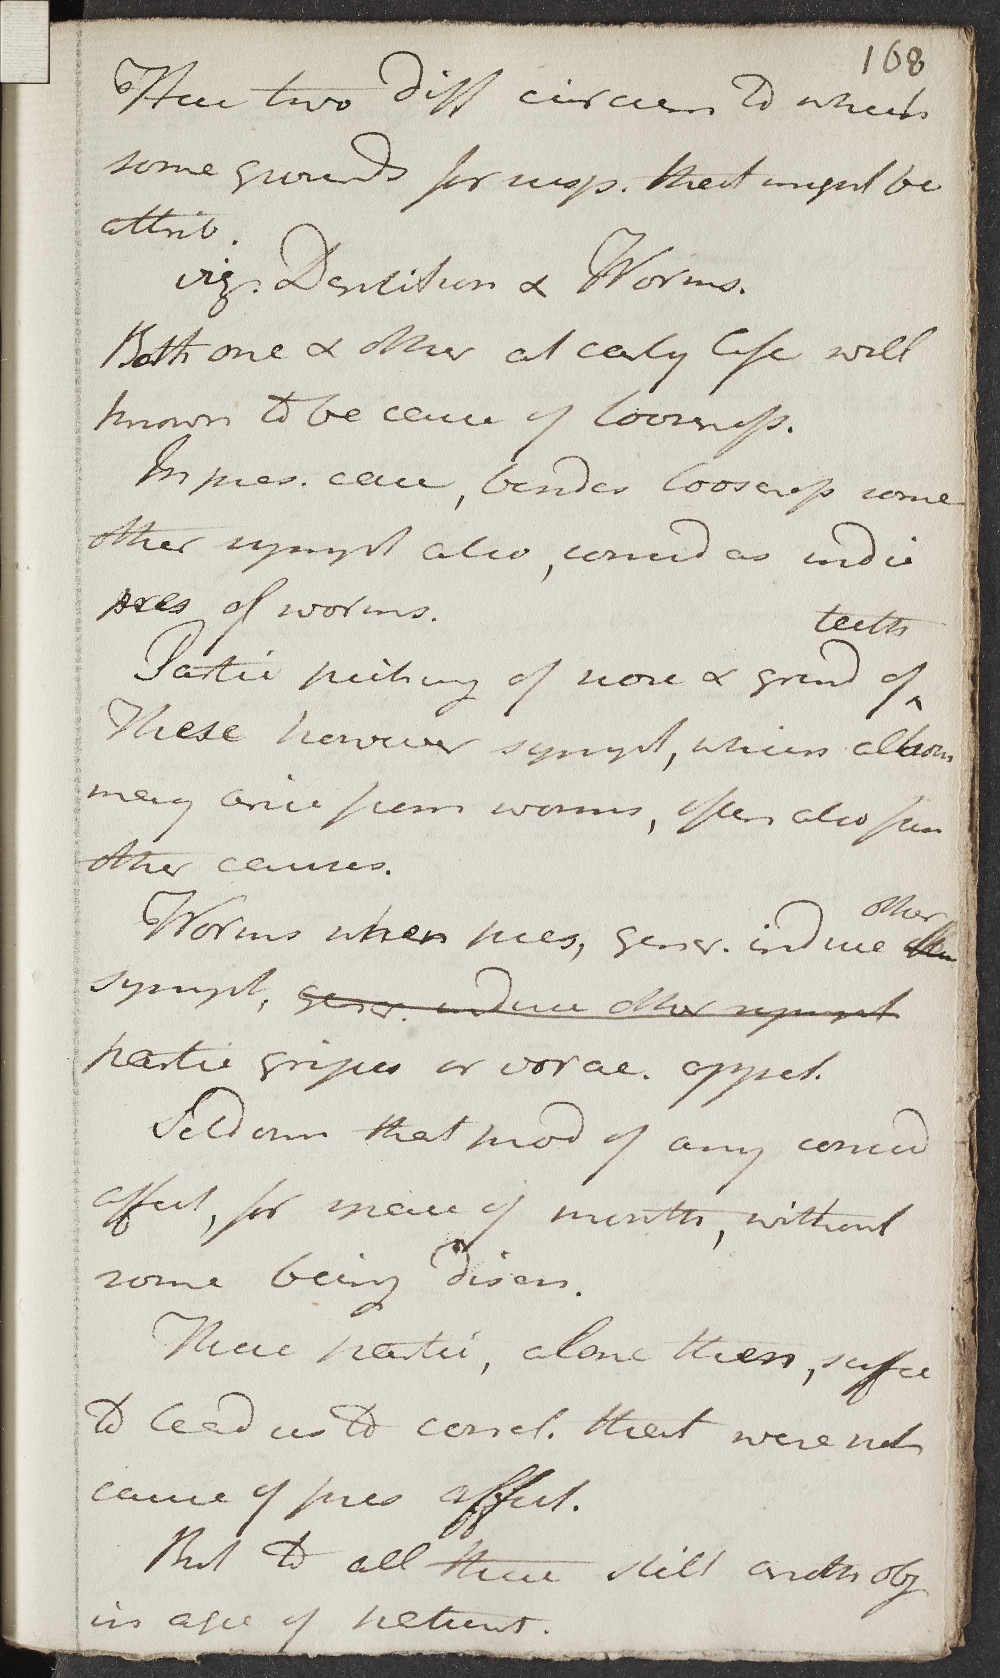 168
These two diff circum to which
some grounds for susp. that might be
attrib.
viz. Dentition & Worms.
Both one & other at early life well
known to be cause of looseness.
In pres. case, besides looseness some
other sympt also, consid as indic
of worms.
Partic picking of nose & grind of teeth
These however sympt, which altho
may arise from worms, often also from
other causes.
Worms when pres, gener. induce other
sympt, gener. induce other sympt
partic gripes or vorac. appet.
Seldom that prod of any consid
affect, for space of months, without
some being discn.
These partic, alone then, suffic
to lead us to concl. that were not
cause of pres affect.
But to all these still anoth obj
in age of patient.